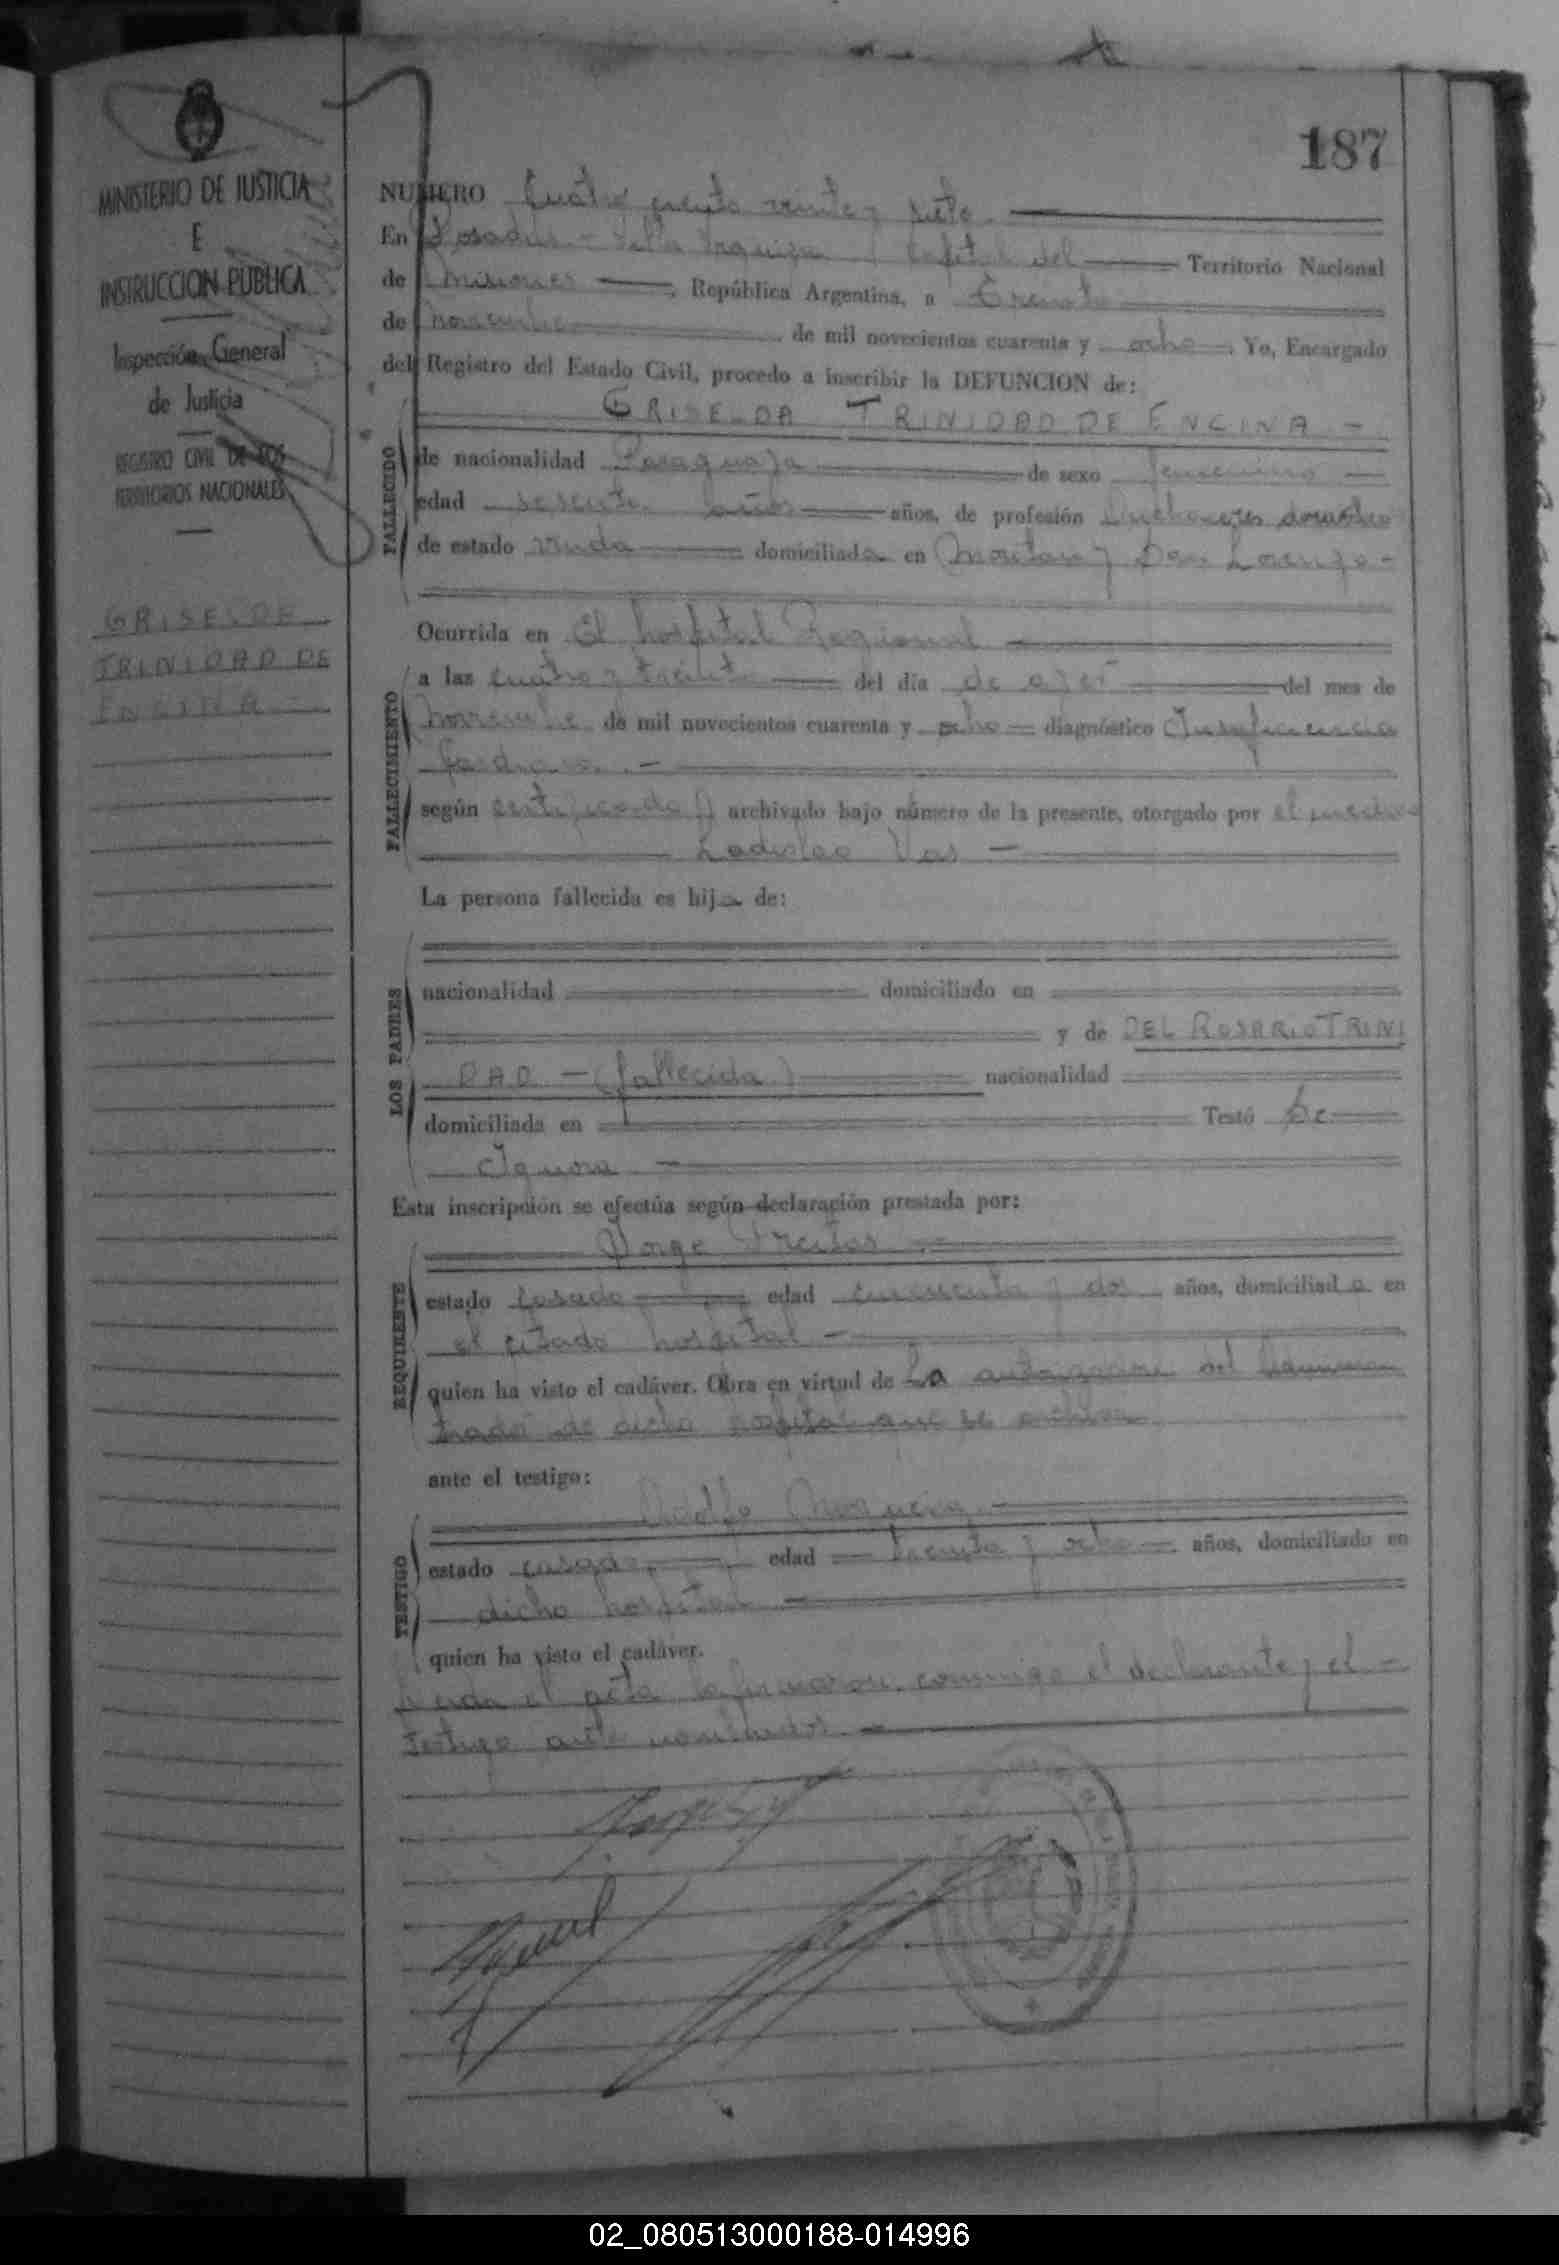 187
MINISTERIO DE JUSTICIA
E
INSTRUCCION PUBLICA
Inspección General
de Justicia
REGISTRO CIVIL DE LOS
TERRITORIOS NACIONALES
GRISELDE
TRINIDAD DE
ENCINA -
NUMERO Cuatro ciento veinte y siete
En Posadas - Villa Urquiza Capital del Territorio Nacional
de Misiones, República Argentina, a Treinta
de noviembre de mil novecientos cuarenta y ocho. Yo, Encargado
del Registro del Estado Civil, procedo a inscribir la DEFUNCION de:
GRISELDA TRINIDAD DE ENCINA -
FALLECIDO
de nacionalidad Paraguaya de sexo femenino
edad sesenta años años, de profesión Quehaceres domestico
de estado viuda domiciliada en y San Lorenzo -
Ocurrida en El hospital Regional
FALLECIMIENTO
a las cuatro y treinta del día de ayer del mes de
Noviembre de mil novecientos cuarenta y ocho diagnóstico Insuficiencia
Cardiaca. -
según certificado archivado bajo número de la presente, otorgado por el medico
Ladislao Vas -
La persona fallecida es hija de:
LOS PADRES
nacionalidad domiciliado en
y de DEL ROSARIO TRINI
DAD - (fallecida) nacionalidad
domiciliada en Testó Se
Ignora -
Esta inscripción se efectúa según declaración prestada por:
REQUIRENTE
Jorge Freitas
estado casado edad cincuenta y dos años, domiciliado en
el citado hospital -
quien ha visto el cadáver. Obra en virtud de La autorizacion del Adminis
trador de dicho hospital que se archiva
ante el testigo:
TESTIGO
Adolfo
estado casado edad treinta y ocho años, domiciliado en
dicho hospital -
quien ha visto el cadáver.
Leida el acta la firmaron conmigo el declarante y el -
testigo ante nombrados -
02_080513000188-014996